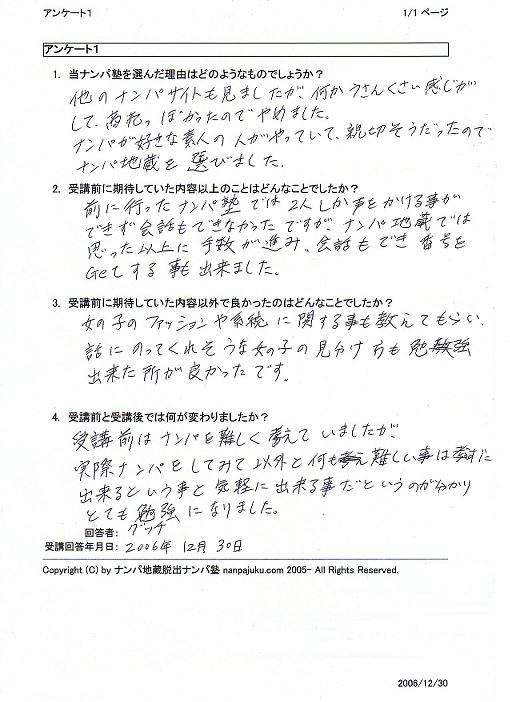 アンケート1
1/1 ページ
アンケート1
1. 当ナンパ塾を選んだ理由はどのようなものでしょうか？
他のナンパサイトも見ましたが、何かうさんくさい感じが
して、高花っぽかったのでやめました。
ナンパが好きな素人の人がやっていて、親切そうだったので
ナンパ地蔵を選びました。
2. 受講前に期待していた内容以上のことはどんなことでしたか？
前に行ったナンパ塾では2人しか声をかける事が
できず会話もできなかったですが、ナンパ地蔵では
思った以上に手数が進み、会話もでき番号を
Getする事も出来ました。
3. 受講前に期待していた内容以外で良かったのはどんなことでしたか？
女の子のファッションや系統に関する事も教えてもらい、
話にのってくれそうな女の子の見分け方も勉強
出来た所が良かったです。
4. 受講前と受講後では何が変わりましたか？
受講前はナンパを難しく考えていましたが、
実際ナンパをしてみて以外と何も難しい事は考ずに
出来るという事と気軽に出来る事だというのが分かり
とても勉強になりました。
回答者： グッチ
受講回答年月日： 2006年 12月 30日
Copyright (C) by ナンパ地蔵脱出ナンパ塾 nanpajuku.com 2005- All Rights Reserved.
2006/12/30